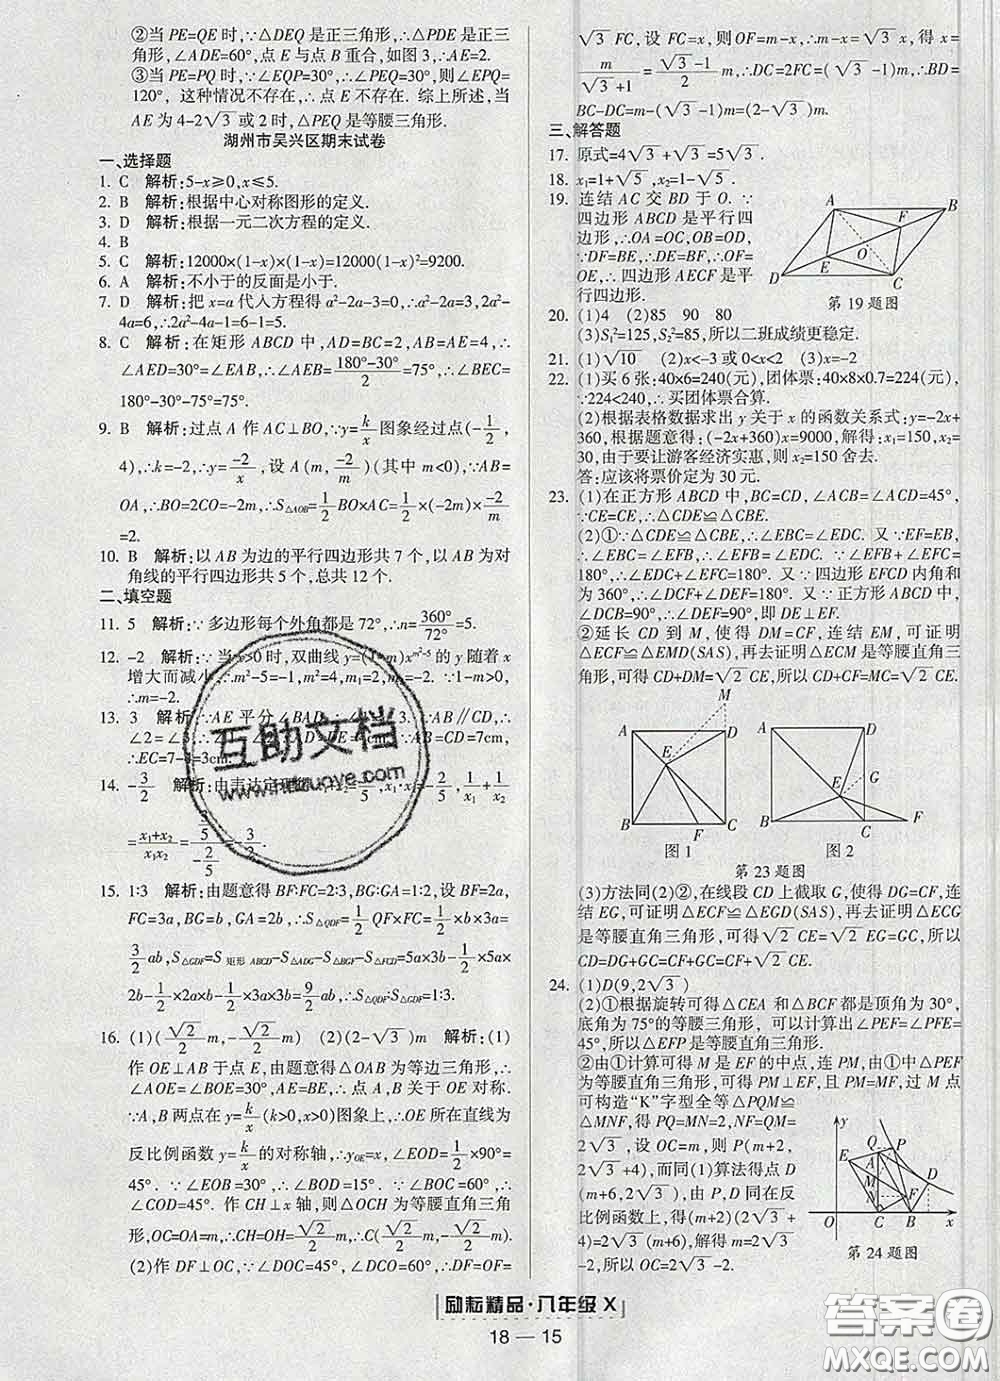 ②当 PE=QE 时,∵△DEQ 是正三角形,∴△PDE 是正三
角形,∠ADE=60°,点 E 与点 B 重合,如图 3,∴AE=2.
③当 PE=PQ 时,∵∠EQP=30°,∴∠PEQ=30°,则∠EPQ=
120°, 这种情况不存在,∴点 E 不存在. 综上所述,当
AE 为 4-2√3 或 2 时,△PEQ 是等腰三角形.
湖州市吴兴区期末试卷
一、选择题
1. C 解析:5-x≥0,x≤5.
2. B 解析:根据中心对称图形的定义.
3. D 解析:根据一元二次方程的定义.
4. B
5. C 解析:12000×(1-x)×(1-x)=12000(1-x)²=9200.
6. A 解析:不小于的反面是小于.
7. D 解析:把 x=a 代入方程得 a²-2a-3=0,∴a²-2a=3,2a²-
4a=6,∴2a²-4a-1=6-1=5.
8. C 解析:在矩形 ABCD 中,AD=BC=2,AB=AE=4,∴
∠AED=30°=∠EAB,∴∠AEB=(180°-30°)/2=75°,∴∠BEC=
180°-30°-75°=75°.
9. B 解析:过点 A 作 AC⊥BO,∵y=k/x图象经过点(-1/2,
4),∴k=-2,∴y=-2/x,设 A(m,-2/m)(其中 m<0),∵AB=
OA,∴BO=2CO=-2m,∴S△AOB=1/2 BO×AC=1/2×(-2m)×-2/m
=2.
10. B 解析:以 AB 为边的平行四边形共 7 个,以 AB 为对
角线的平行四边形共 5 个,总共 12 个.
二、填空题
11. 5 解析:∵多边形每个外角都是 72°,∴n=360°/72°=5.
12. -2 解析:∵当 x>0 时,双曲线 y=(1-m)x^(m²-5) 的 y 随着 x
增大而减小,∴m²-5=-1,m²=4,m=2,m=-2. ∵1-m>0,
∴m=-2.
13. 3 解析:∵AE 平分∠BAD,∴∠1=∠2. ∵AB∥CD,∴
∠2=∠3,∴∠1=∠3,∴AD=DE=4cm. ∵AB=CD=7cm,
∴EC=7-4=3cm.
14. -3/2 解析:由韦达定理
=(x₁+x₂)/(x₁x₂)=(3/5)/(-2/5)=-3/2.
15. 1∶3 解析:由题意得 BF∶FC=2∶3,BG∶GA=1∶2,设 BF=2a,
FC=3a,BG=b,GA=2b,∴S△QDF=1/2 QF×FC=1/2×b×3a=
3/2 ab,S△GDF=S矩形ABCD-S△ADG-S△GBF-S△FCD=5a×3b-1/2×5a×
2b-1/2×2a×b-1/2×3a×3b=9/2 ab,∴S△QDF∶S△GDF=1∶3.
16. (1)(√2/2 m,-√2/2 m) (2)(2-√3)m 解析:(1)
作 OE⊥AB 于点 E,由题意得△OAB 为等边三角形,∴
∠AOE=∠BOE=30°,AE=BE,∴点 A,B 关于 OE 对称.
∵A,B 两点在 y=k/x(k>0,x>0)图象上,∴OE 所在直线为
反比例函数 y=k/x的对称轴,∴yOE=x,∴∠EOD=45°.
∵∠EOB=30°,∴∠BOD=15°. ∵∠BOC=60°,∴
∠COD=45°. 作 CH⊥x 轴,则△OCH 为等腰直角三角
形,OC=OA=m,∴CH=OH=√2/2 m,∴C(√2/2 m,-√2/2 m).
(2)作 DF⊥OC,∵∠DOC=45°,∠DCO=60°,∴DF=OF=
√3 FC,设 FC=x,则 OF=DF=m-x,∴m-x=√3 x,得 x=
m/(√3+1)=(√3-1)/2 m,∴DC=2FC=(√3-1)m,∴BD=
BC-DC=m-(√3-1)m=(2-√3)m.
三、解答题
17. 原式=4√3+√3=5√3.
18. x₁=1+√5,x₂=1-√5.
19. 连结 AC 交 BD 于 O. ∵
四边形 ABCD 是平行四
边形,∴OA=OC,OB=OD.
∵DF=BE,∴DE=BF,∴OF=
OE,∴四边形 AECF 是平
行四边形.
A B F O E D C
第 19 题图
20. (1)4 (2)85 90 80
(3)S₁²=125,S₂²=85,所以二班成绩更稳定.
21. (1)√10 (2)x<-3 或 0<x<2 (3)x=-2
22. (1)买 6 张:40×6=240(元),团体票:40×8×0.7=224(元),
∵224<240,∴买团体票合算.
(2)根据表格数据求出 y 关于 x 的函数关系式:y=-2x+
360,根据题意得:(-2x+360)x=9000,解得:x₁=150,x₂=
30,由于要让游客经济实惠,则 x₂=150 舍去.
答:应该将票价定为 30 元.
23. (1)在正方形 ABCD 中,BC=CD,∠ACB=∠ACD=45°,
∵CE=CE,∴△CDE≌△CBE.
(2)①∵△CDE≌△CBE,∴∠EBC=∠EDC. 又∵EF=EB,
∴∠EBC=∠EFB,∴∠EFB=∠EDC. ∵∠EFB+∠EFC=
180°,∴∠EDC+∠EFC=180°. 又∵四边形 EFCD 内角和
为 360°,∴∠DCF+∠DEF=180°. 又∵正方形 ABCD 中,
∠DCB=90°,∴∠DEF=90°,即 DE⊥EF.
②延长 CD 到 M,使得 DM=CF,连结 EM,可证明
△ECF≌△EMD(SAS),再去证明△ECM 是等腰直角三
角形,可得 CD+DM=√2 CE,所以 CD+CF=MC=√2 CE.
M A D E B F C 图 1
A D G E B C F 图 2
第 23 题图
(3)方法同(2)②,在线段 CD 上截取 G,使得 DG=CF,连
结 EG,可证明△ECF≌△EGD(SAS),再去证明△ECG
是等腰直角三角形,可得√2 CE=√2 EG=GC,所以
CD=DG+GC=CF+√2 CE.
24. (1)D(9,2√3)
(2)①根据旋转可得△CEA 和△BCF 都是顶角为 30°,
底角为 75°的等腰三角形, 可以计算出∠PEF=∠PFE=
45°,所以△EFP 是等腰直角三角形.
②由①计算可得 M 是 EF 的中点,连 PM,由①中△PEF
为等腰直角三角形,可得 PM⊥EF,且 PM=MF,过 M 点
可构造“K”字型全等△PQM≌
△MNF,得 PQ=MN=2,NF=QM=
2√3,设 OC=m,则 P(m+2,
2√3+4),而同(1)算法得点 D
(m+6,2√3),由 P,D 同在反
比例函数上,得(m+2)(2√3+
4)=2√3(m+6),解得 m=2√3
-2,所以 OC=2√3-2.
y Q P E A D M F N O C B x
第 24 题图
励耘精品·八年级 X
18—15
互助文档
答案圈
MXQE.COM